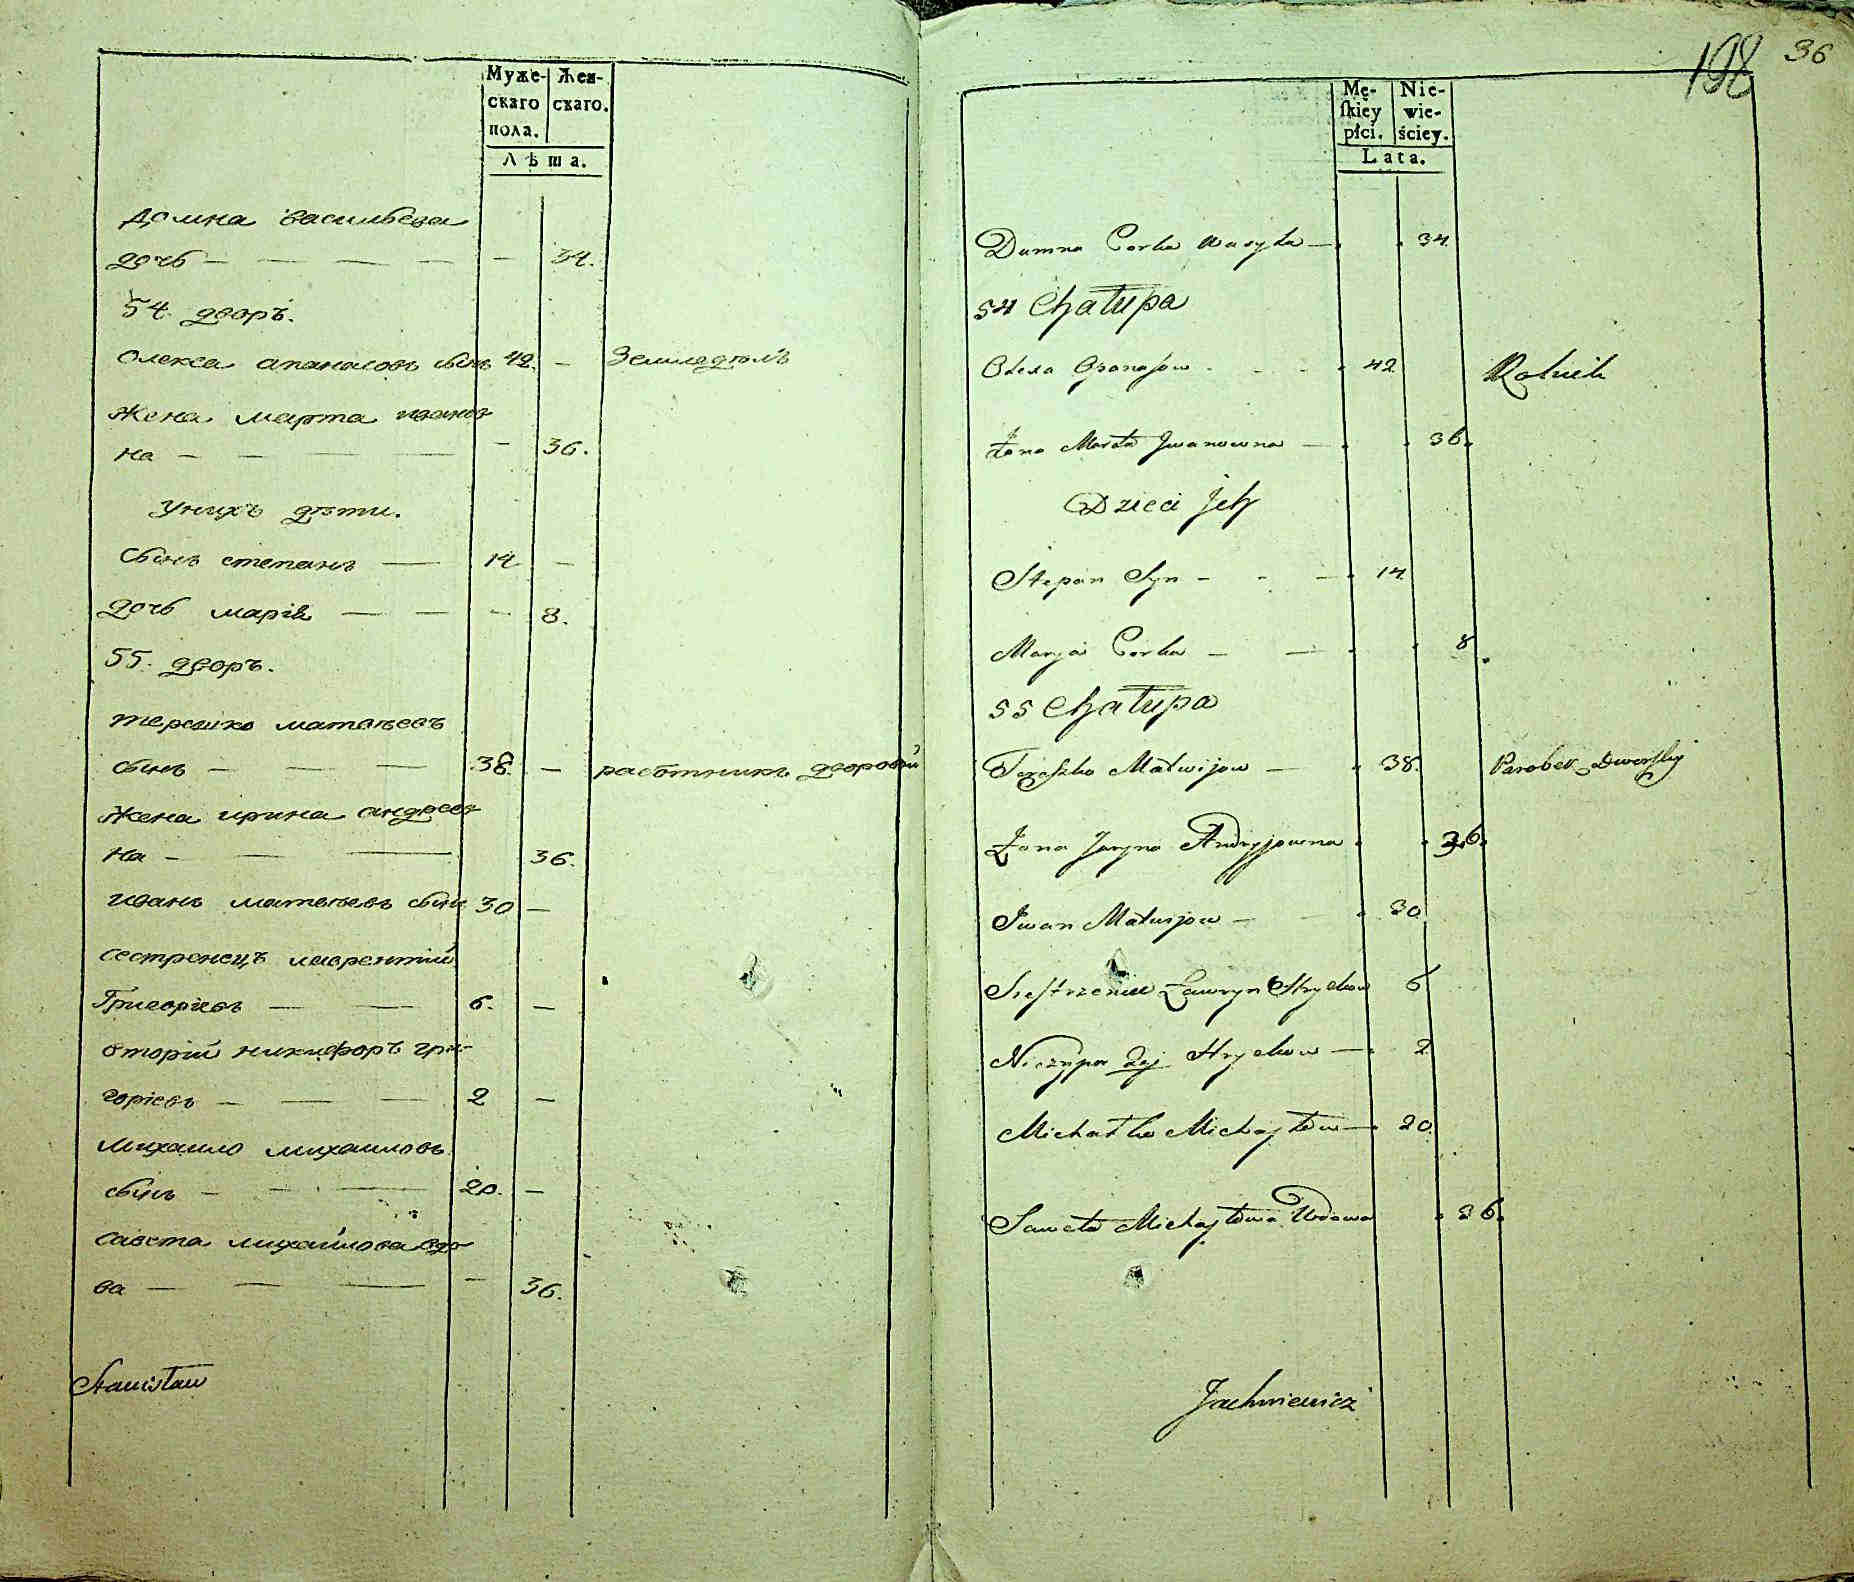 Муже- Жен-
скаго скаго.
пола.
Лѣта.
домна васильева
дочь — — — — — 34.
54. дворъ.
Олекса апанасовъ сынъ 42. — Земледѣлъ
жена марта иванов
на — — — — — 36.
Унихъ дѣти.
Сынъ степанъ — 14 —
дочь марія — — — 8.
55. дворъ.
терешко матвѣевъ
сынъ — — — 38. — работникъ дворовый
жена ирина андреев
на — — — 36.
иванъ матвѣевъ сынъ 30 —
сестренецъ лаврентій
Григоріевъ — — 6. —
вторій никифоръ гри-
горіевъ — — — 2 —
михаило михаиловъ
сынъ — — — 20. —
савета михайлова вдо
ва — — — — 36.
Stanisław
198 36
Mę- Nie-
skiey wie-
płci. ściey.
Lata.
Dumna Corka Wasyla — 34.
54 Chałupa
Olexa Opanasow - - - 42 Rolnik
Żona Marta Jwanowna — 36.
Dzieci Jch
Stepan Syn - - — 14
Marya Corka — — 8.
55 Chałupa
Tereszko Matwijow — 38. Parobek Dworski
Żona Jaryna Andryjowna 36.
Jwan Matwijow — 30
Siestrzeniec Ławryn Hryckow 6
Niczypor 2gi Hrycków — 2
Michałko Michayłow — 20
Saweta Michayłowa Wdowa 36.
Jachniewicz